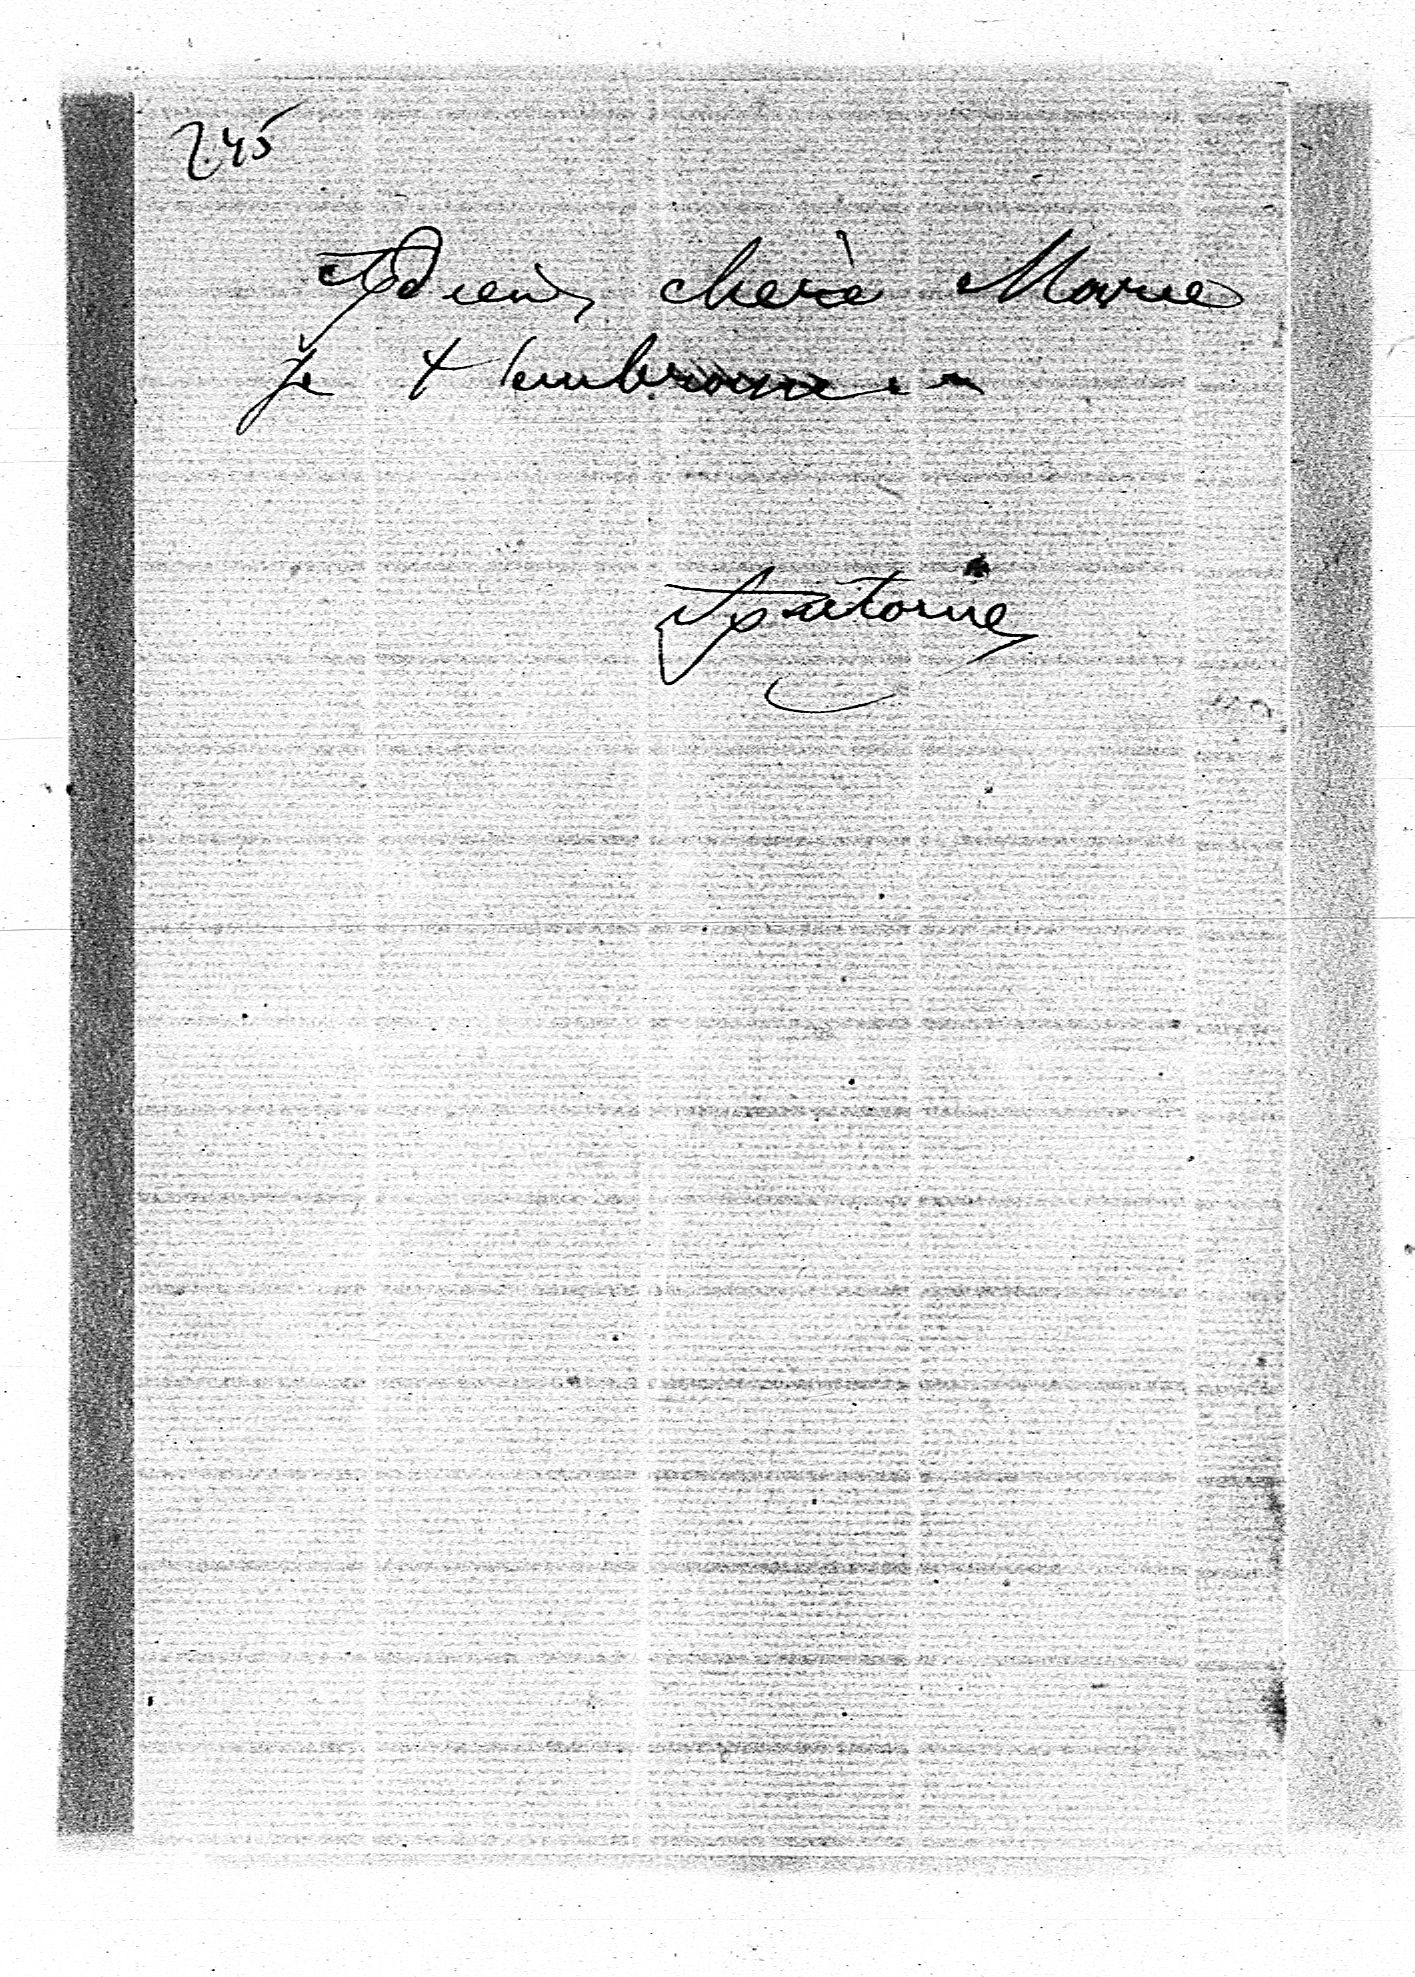 245
Adieu, chère Marie
je t'embrasse